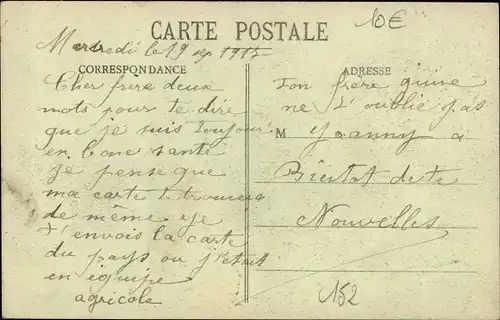 CARTE POSTALE
10€
Mercredi le 19 sep 1917
CORRESPONDANCE
ADRESSE
Cher frère deux
mots pour te dire
que je suis toujour
en bone santé
je pense que
ma carte te trouvera
de même je
t'envois la carte
du pays ou j'etait
en équipe
agricole
Ton frère quine
ne t'oublie pas
M Joanny a
Bientot de te
Nouvelles
152